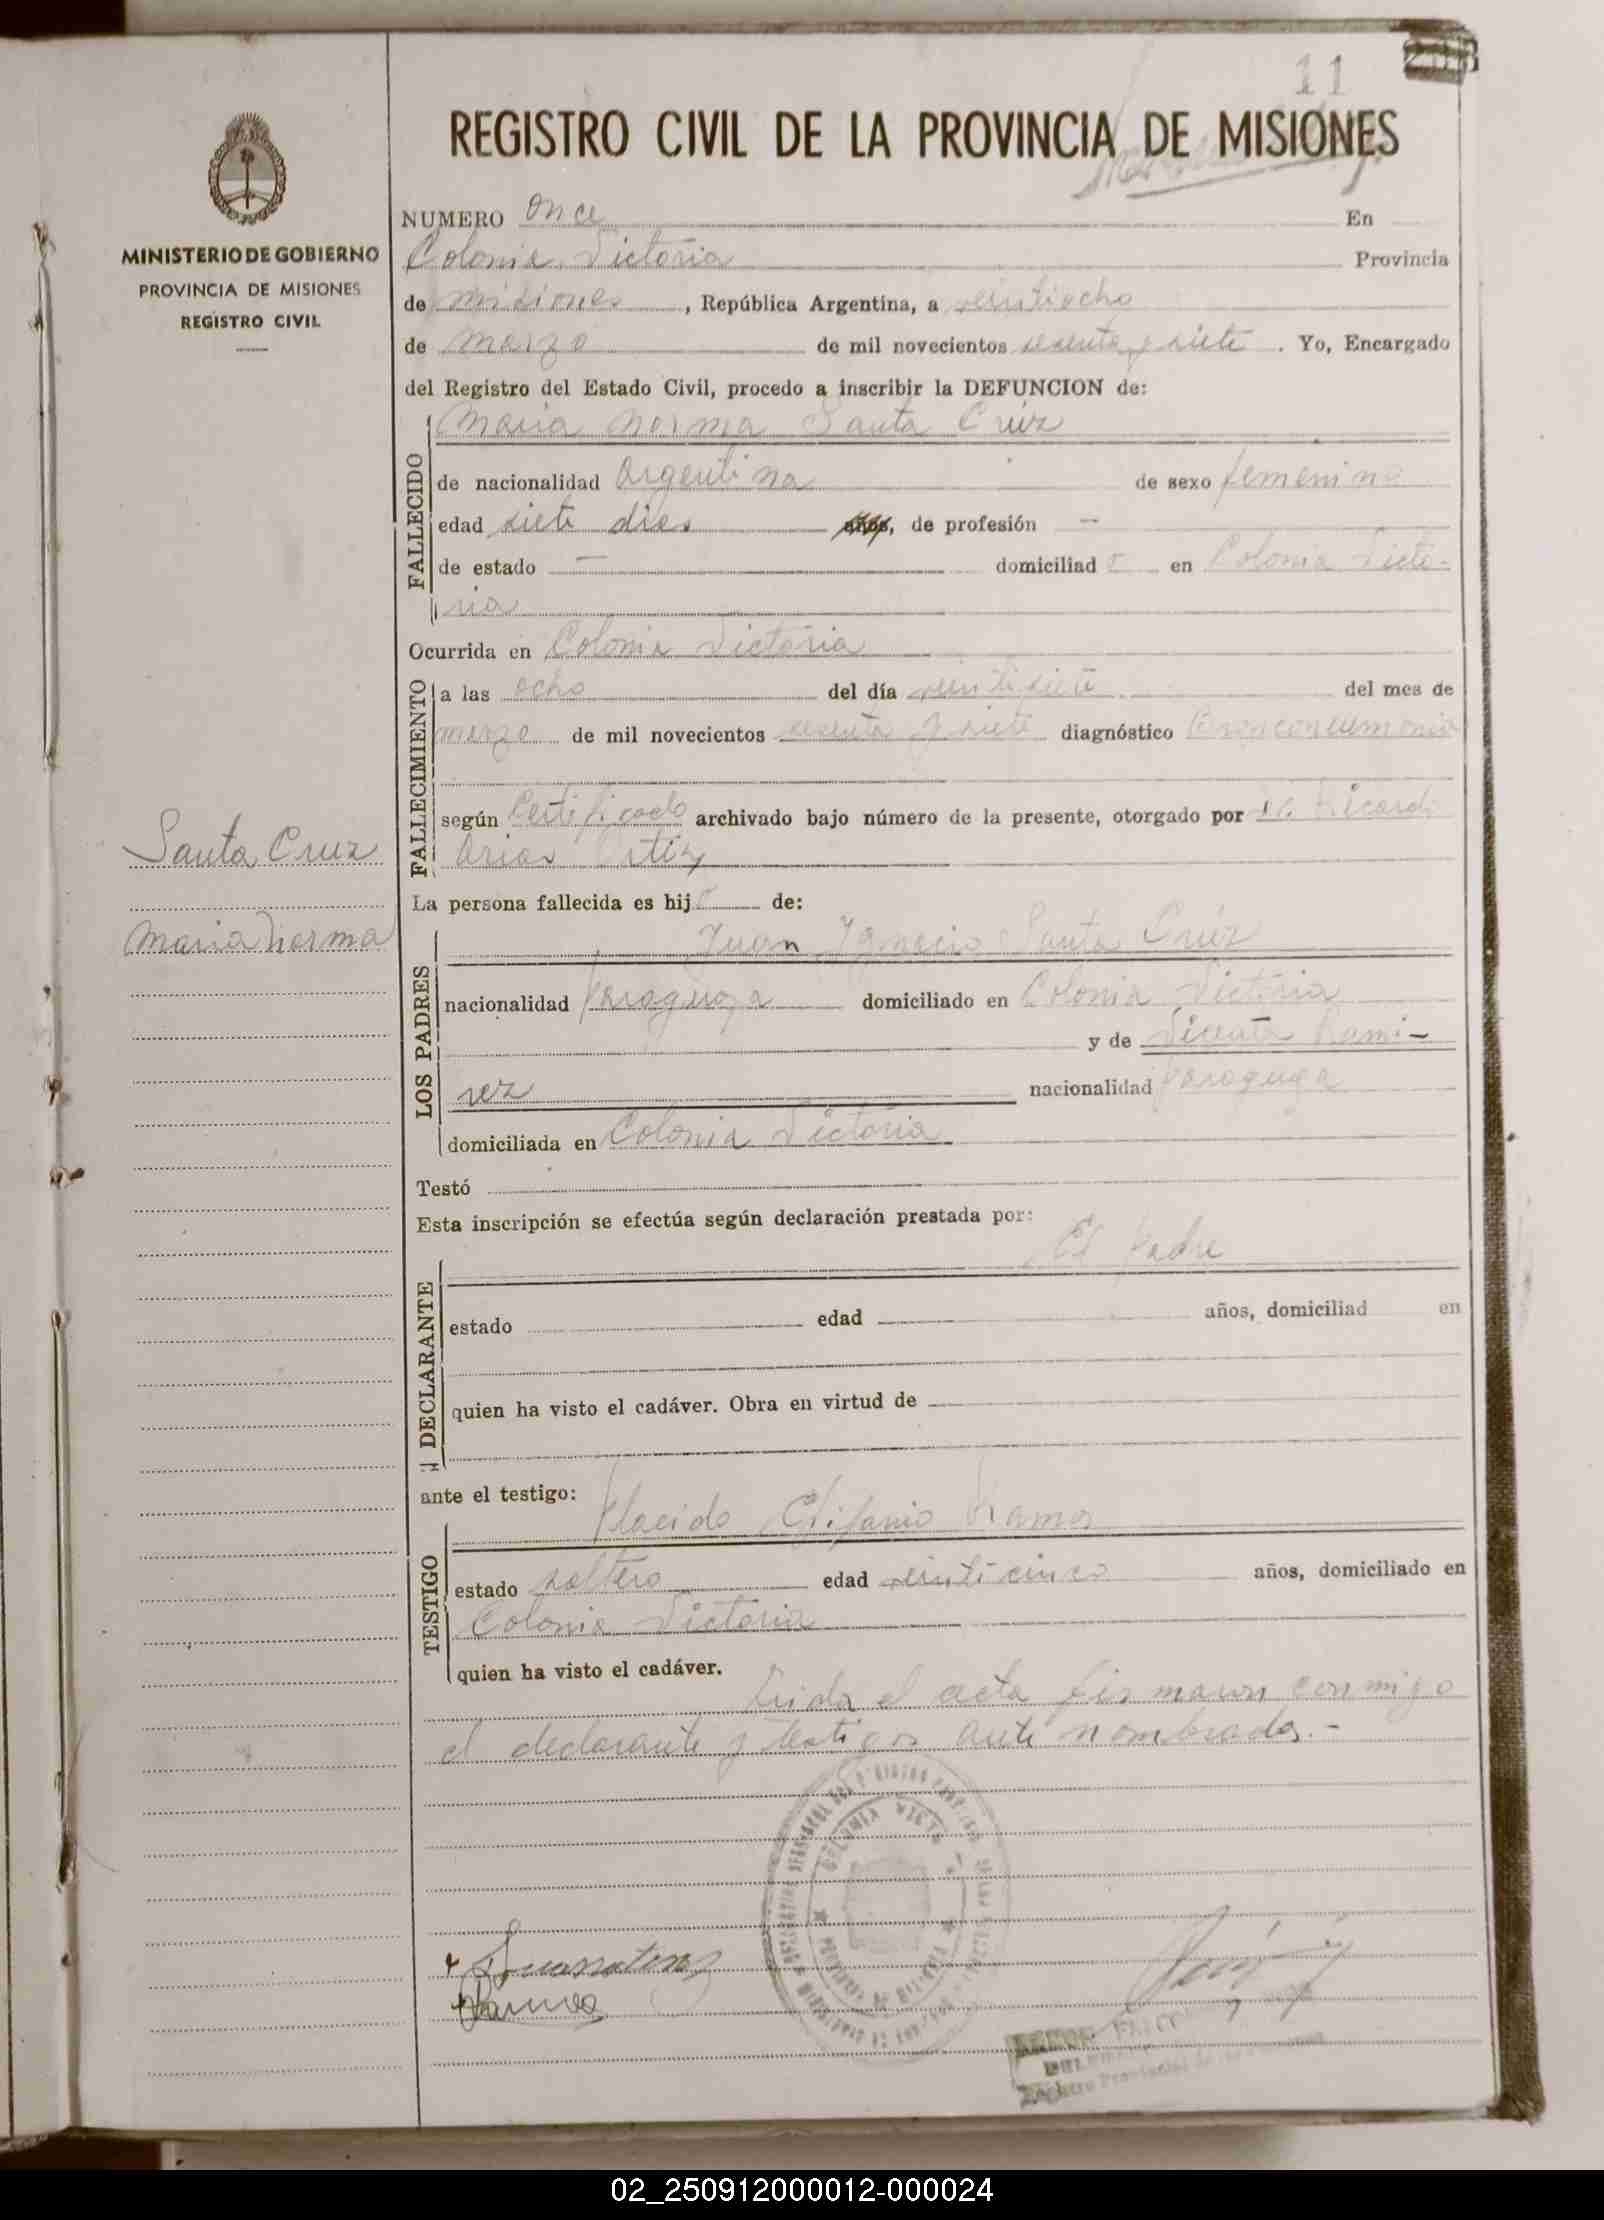 11
REGISTRO CIVIL DE LA PROVINCIA DE MISIONES
MINISTERIO DE GOBIERNO
PROVINCIA DE MISIONES
REGISTRO CIVIL
NUMERO once En
Colonia Victoria Provincia
de misiones, República Argentina, a veintiocho
de marzo de mil novecientos sesenta y siete. Yo, Encargado
del Registro del Estado Civil, procedo a inscribir la DEFUNCION de:
Maria Norma Santa Crúz
FALLECIDO
de nacionalidad Argentina de sexo femenino
edad siete dias años, de profesión —
de estado — domiciliad o en Colonia Victo-
ria
Ocurrida en Colonia Victoria
FALLECIMIENTO
a las ocho del día veintisiete del mes de
marzo de mil novecientos sesenta y siete diagnóstico Bronconeumonia
según Certificado archivado bajo número de la presente, otorgado por Dr. Ricardo
Arias Ortiz
Santa Cruz
Maria Norma
La persona fallecida es hij o de:
Juan Ignacio Santa Crúz
LOS PADRES
nacionalidad Paraguaya domiciliado en Colonia Victoria
y de Vicenta Rami-
rez nacionalidad Paraguaya
domiciliada en Colonia Victoria
Testó
Esta inscripción se efectúa según declaración prestada por:
El Padre
DECLARANTE
estado edad años, domiciliad en
quien ha visto el cadáver. Obra en virtud de
ante el testigo:
Placido Epifanio Ramos
TESTIGO
estado soltero edad veinticinco años, domiciliado en
Colonia Victoria
quien ha visto el cadáver.
Leida el acta firmaron conmigo
el declarante y testigos ante nombrados.-
COLONIA VICTORIA
PROVINCIA DE MISIONES
Ramos
Registro Provincial de las Personas
02_250912000012-000024